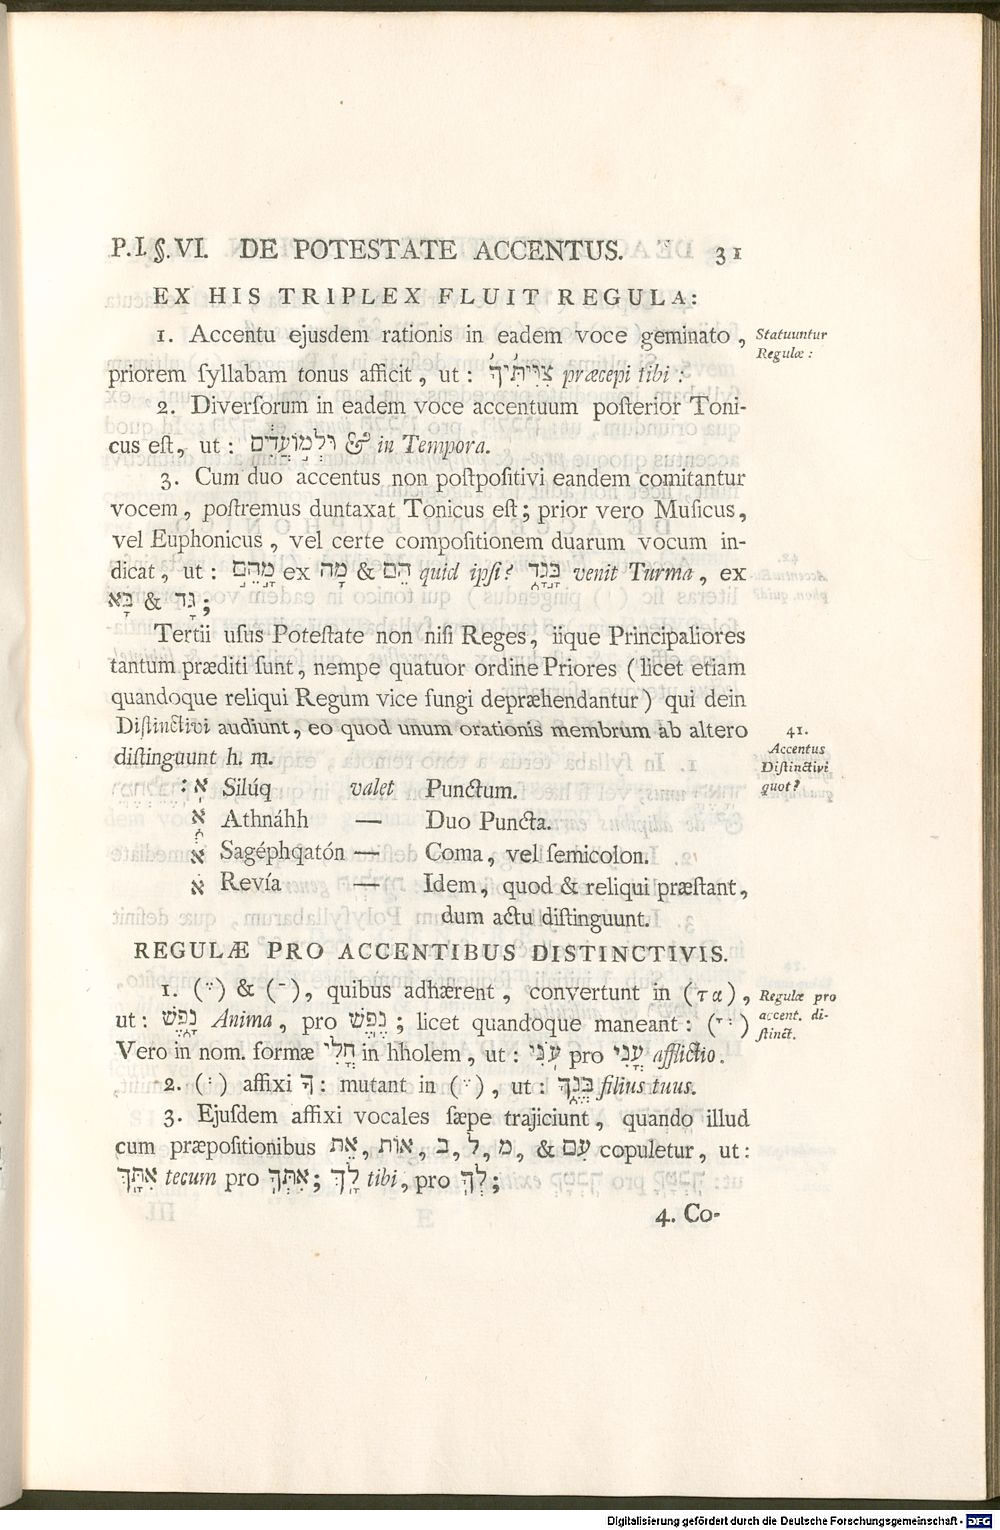 P.I.§.VI. DE POTESTATE ACCENTUS. 31
EX HIS TRIPLEX FLUIT REGULA:
1. Accentu ejusdem rationis in eadem voce geminato,
Statuuntur
Regulæ:
priorem syllabam tonus afficit, ut: צִוִּיתִיךָ præcepi tibi:
2. Diversorum in eadem voce accentuum posterior Toni-
cus est, ut: וּלְמוֹעֲדִים & in Tempora.
3. Cum duo accentus non postpositivi eandem comitantur
vocem, postremus duntaxat Tonicus est; prior vero Musicus,
vel Euphonicus, vel certe compositionem duarum vocum in-
dicat, ut: מָהֵם ex מָה & הֵם quid ipsi? בָּגָד venit Turma, ex
בָּא & גָּד;
Tertii usus Potestate non nisi Reges, iique Principaliores
tantum præditi sunt, nempe quatuor ordine Priores (licet etiam
quandoque reliqui Regum vice fungi depræhendantur) qui dein
Distinctivi audiunt, eo quod unum orationis membrum ab altero
distinguunt h. m.
41.
Accentus
Distinctivi
quot?
אֽ: Silúq valet Punctum.
א֑ Athnáhh — Duo Puncta.
א֔ Sagéphqatón — Coma, vel semicolon.
א֗ Revía — Idem, quod & reliqui præstant,
dum actu distinguunt.
REGULÆ PRO ACCENTIBUS DISTINCTIVIS.
1. (ֶ) & (ַ), quibus adhærent, convertunt in (τα),
Regulæ pro
accent. di-
stinct.
ut: נָפֶשׁ Anima, pro נֶפֶשׁ; licet quandoque maneant: (ֳ)
Vero in nom. formæ חֳלִי in hholem, ut: עֹנִי pro עֳנִי afflictio.
2. (ְ) affixi ךָ: mutant in (ֶ), ut: בְּנֶךָ filius tuus.
3. Ejusdem affixi vocales sæpe trajiciunt, quando illud
cum præpositionibus אֵת, אוֹת, ב, ל, מ, & עִם copuletur, ut:
אִתָּךְ tecum pro אִתְּךָ; לָךְ tibi, pro לְךָ;
4. Co-
Digitalisierung gefördert durch die Deutsche Forschungsgemeinschaft - DFG